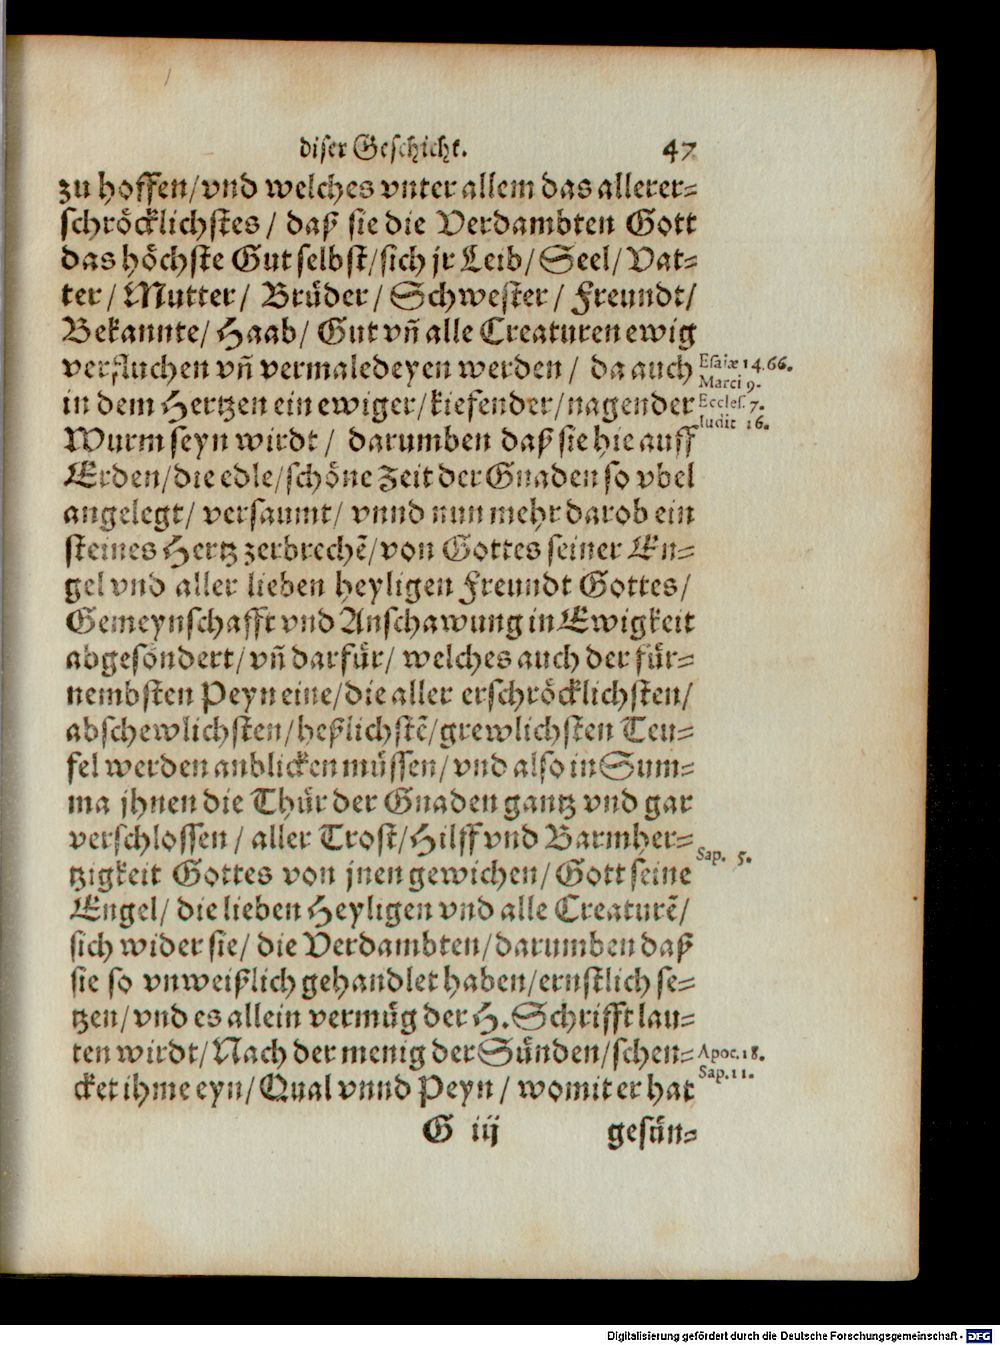 diser Geschicht. 47
zu hoffen/vnd welches vnter allem das allerer-
schröcklichstes/ daß sie die Verdambten Gott
das höchste Gut selbst/sich jr Leib/Seel/Vat-
ter/Mutter/ Brůder/Schwester/Freundt/
Bekannte/Haab/ Gut vñ alle Creaturen ewig
verfluchen vñ vermaledeyen werden/ da auch
Esaiæ 14.66.
Marci 9.
in dem Hertzen ein ewiger/kiefender/nagender
Eccles. 7.
Iudit 16.
Wurm seyn wirdt/ darumben daß sie hie auff
Erden/die edle/schöne Zeit der Gnaden so vbel
angelegt/ versaumt/ vnnd nun mehr darob ein
steines Hertz zerbrechē/von Gottes seiner En-
gel vnd aller lieben heyligen Freundt Gottes/
Gemeynschafft vnd Anschawung in Ewigkeit
abgesöndert/vñ darfür/ welches auch der für-
nembsten Peyn eine/die aller erschröcklichsten/
abschewlichsten/heßlichstē/grewlichsten Teu-
fel werden anblicken müssen/vnd also in Sum-
ma jhnen die Thür der Gnaden gantz vnd gar
verschlossen/ aller Trost/Hilff vnd Barmher-
Sap. 5.
tzigkeit Gottes von jnen gewichen/Gott seine
Engel/ die lieben Heyligen vnd alle Creaturē/
sich wider sie/ die Verdambten/darumben daß
sie so vnweißlich gehandlet haben/ernstlich se-
tzen/vnd es allein vermüg der H. Schrifft lau-
ten wirdt/Nach der menig der Sünden/schen-
Apoc. 18.
Sap. 11.
cket ihme eyn/Qual vnnd Peyn/ womit er hat
G iij gesün-
Digitalisierung gefördert durch die Deutsche Forschungsgemeinschaft - DFG